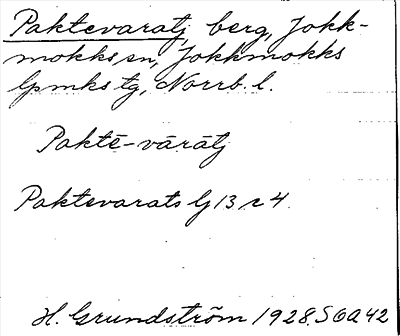 Paktevaratj, berg, Jokk-
mokks sn, Jokkmokks
lpmks tg, Norrb. l.
Paktē-vārātj
Paktevarats Gj 13 r 4
H. Grundström 1928. S6a42